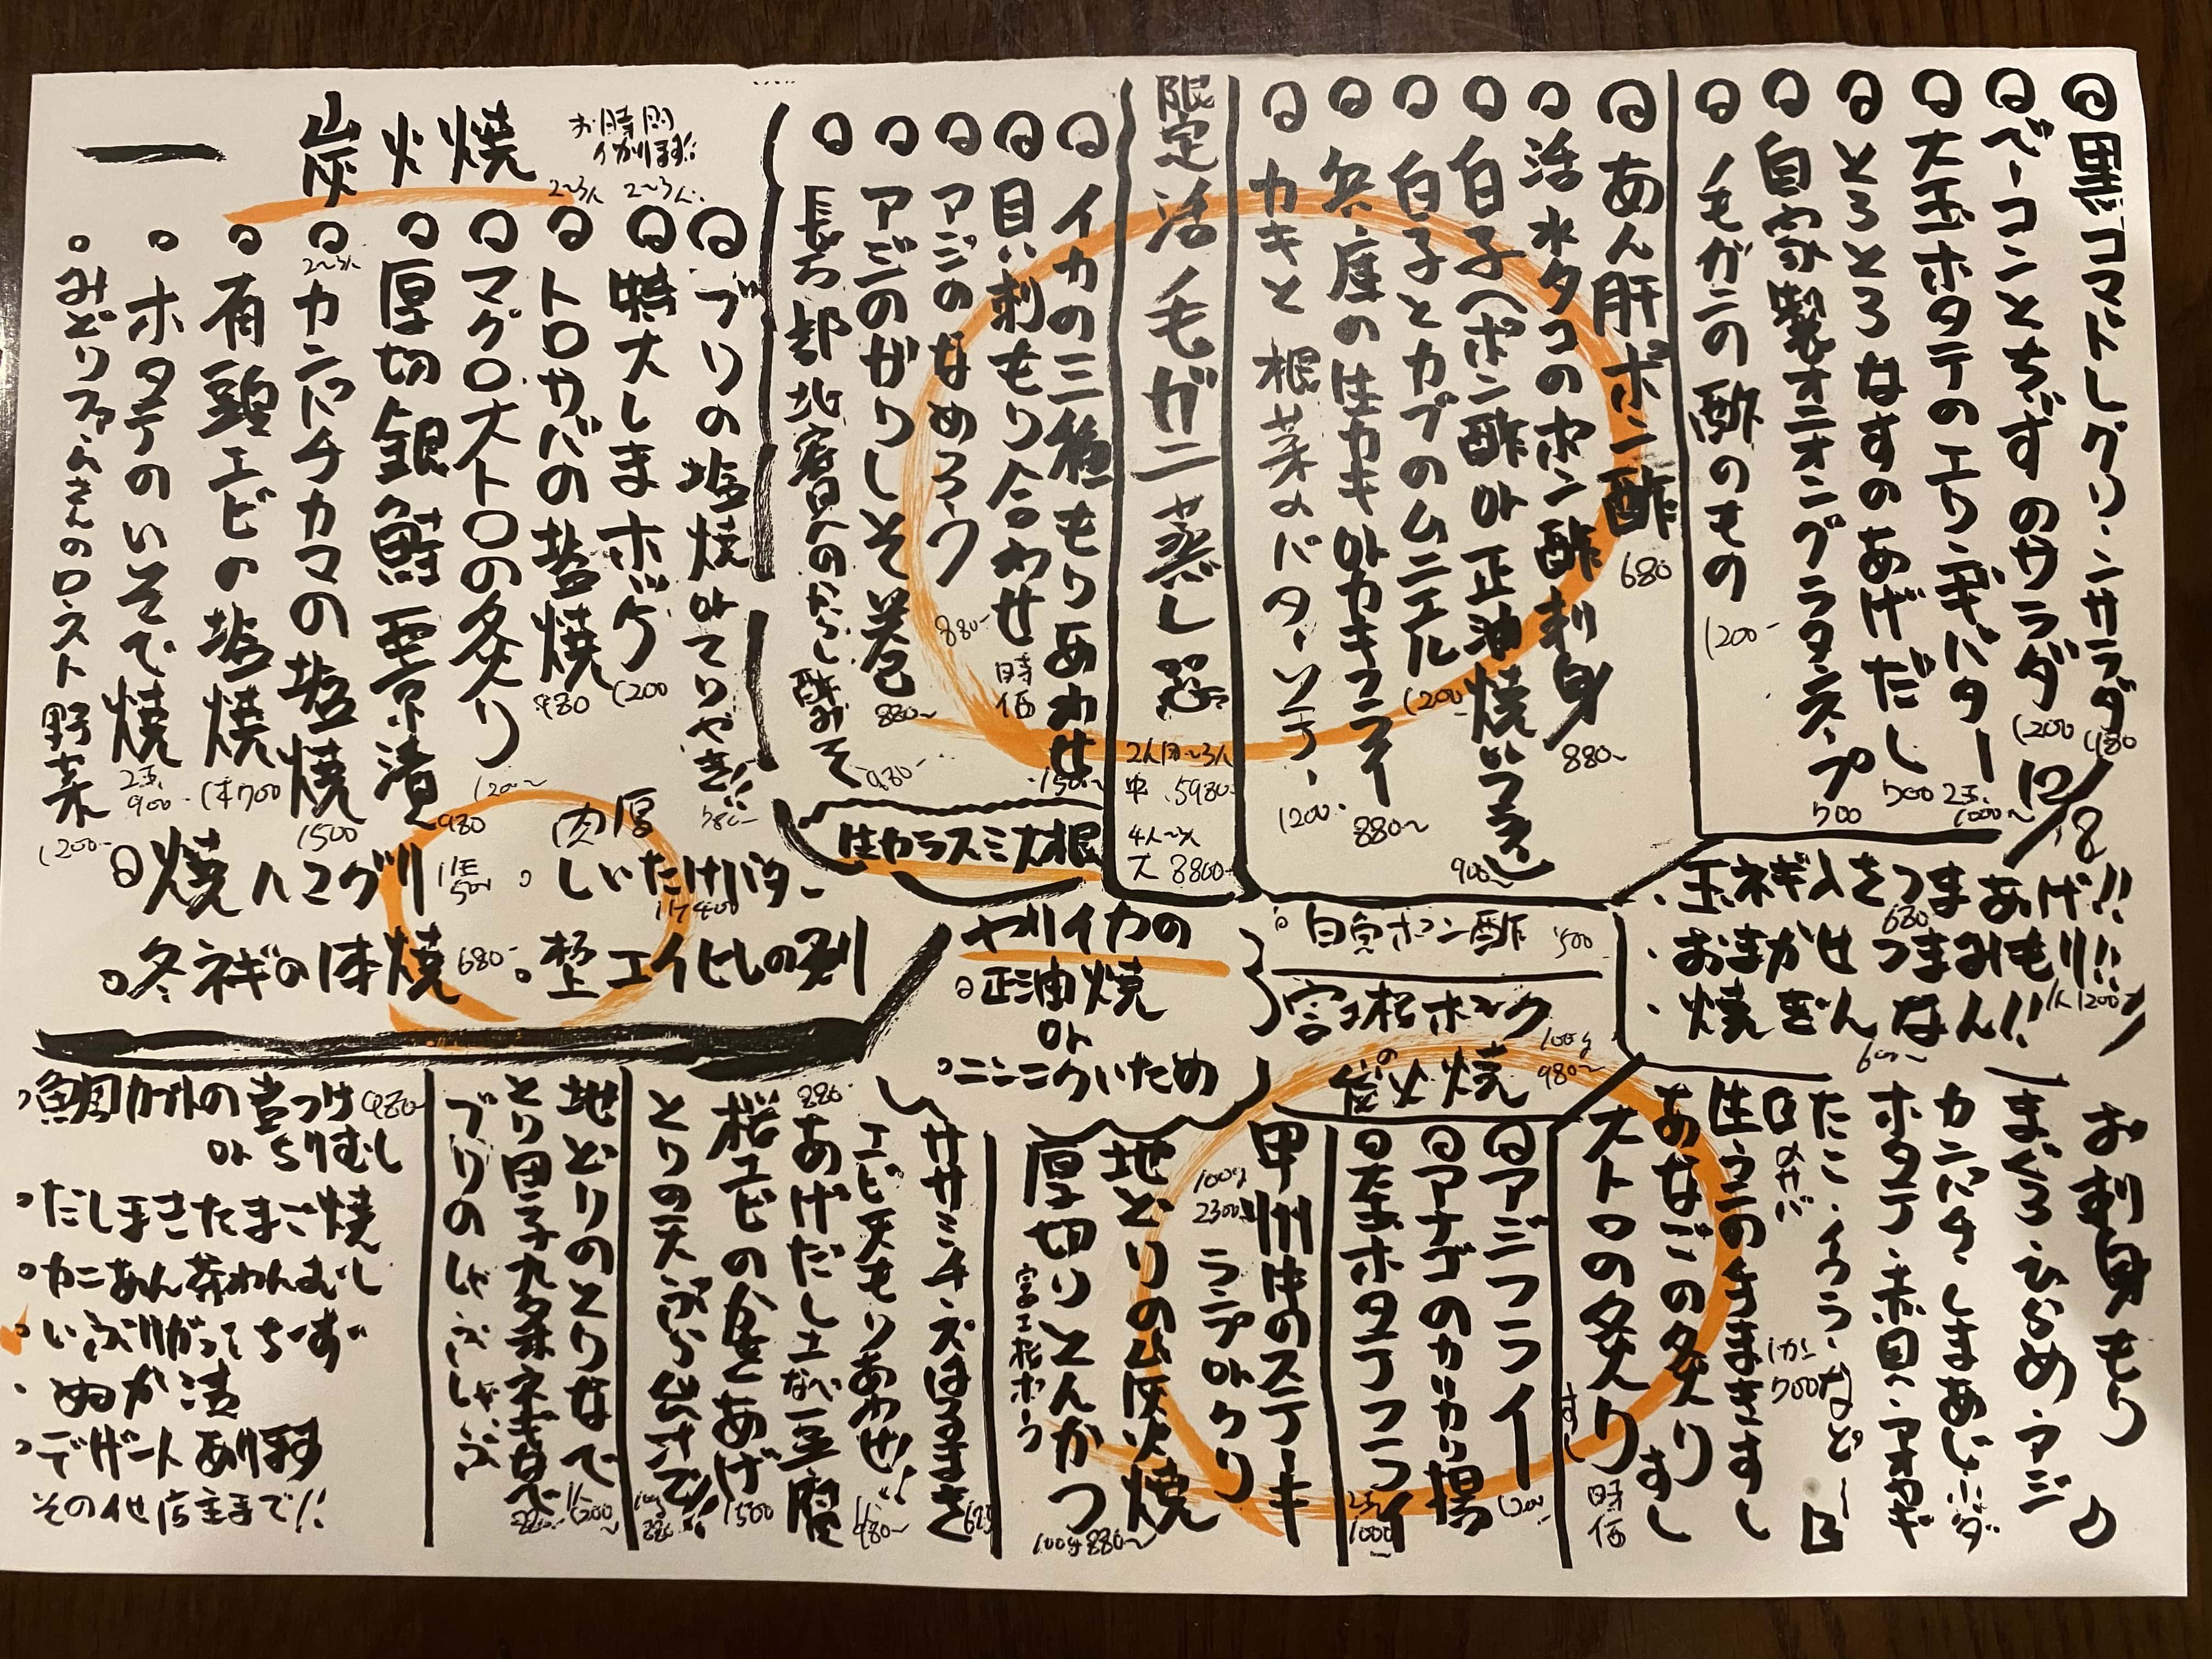 黒ゴマドレグリーンサラダ 980
12/8
ベーコンとちーずのサラダ 1200
大玉ホタテのエリンギバター 2玉 1000〜
とろとろなすのあげだし 700
自家製オニオングラタンスープ 700
毛ガニの酢のもの 1200-
あん肝ポン酢 680
活水タコのポン酢 刺身 880〜
白子ポン酢 or 正油焼 900〜
白子とカブのムニエル 1200-
兵庫の生カキ or カキフライ 880〜
カキと根菜のバターソテー 1200-
限定 活毛ガニ蒸し
2人前〜3人
中 5980-
4人〜
大 8800-
イカの三種もりあわせ 1500〜
貝刺もり合わせ 時価
アジのなめろう 880-
アジのがりしそ巻 880〜
からし酢みそ 980-
生カラスミ大根
炭火焼
お時間
かかります!!
ブリの塩焼 or てりやき!! 980-
2〜3人 特大しまホッケ 1200
2〜3人 トロサバの塩焼 980
マグロ大トロの炙り 1200〜
厚切銀鱈西京漬 980
2〜3人 カンパチカマの塩焼 1500
有頭エビの塩焼 1本700
ホタテのいそべ焼 2玉 900-
みどりふぁーむさんのロースト野菜 1200-
焼ハマグリ 1ヶ500
肉厚
しいたけバター 1ヶ400
冬ネギの1本焼 680-
極上エイヒレの
ヤリイカの
正油焼
or
ニンニクいため
白魚ポン酢 500
炭火焼 100g 980〜
玉ネギ入さつまあげ!! 680
おまかせつまみもり!! 1人1200
焼ぎんなん!! 600〜
お刺身もり
まぐろ・ひらめ・アジ
カンパチ・しまあじ・
ホタテ・赤貝・アオヤギ
たこ・イクラ・など
〆サバ
生ウニの手まきすし 1カン 700
あなごの炙りすし
大トロの炙りすし 時価
アジフライ 1200-
アナゴのカリカリ揚
大玉ホタテフライ 2玉 1000〜
甲州牛のステーキ
100g 2300 ランプ or クリ
地どりの炭火焼
厚切りとんかつ 100g 880〜
ササミチーズはるまき 680
エビ天もりあわせ!! 980〜
880- あげだし土なべ豆腐
桜エビのかきあげ 1500
とりの天ぷら
地どりのとりなべ 1人 1200〜
とり団子九条ネギなべ
ブリのしゃぶしゃぶ
鯛カブトの煮つけ 980-
or ちりむし
だしまきたまご焼
カニあん茶わんむし
いぶりがっこちーず
ぬか漬
デザートあり〼
その他店主まで!!